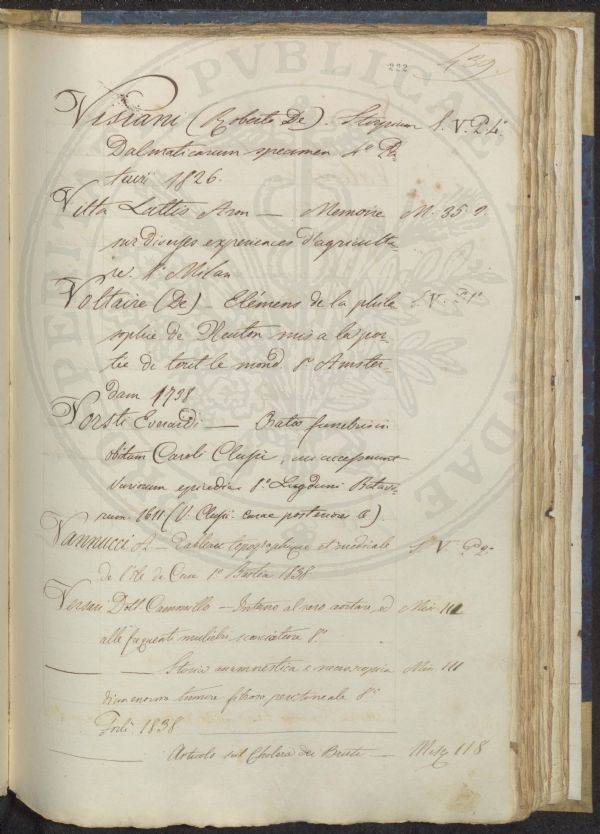 222 439
Visiani (Roberto De). Stirpium S. V. P. 4.
Dalmaticarum specimen 4º Pa-
tavii 1826.
Vitta Lattis Aron — Memoire M. 35. 9.
sur diverses experiences d'agricultu-
re. 8º Milan
Voltaire (De) — Elémens de la philo
sophie de Neuton mis a la por-
tée de tout le mond. 8º Amster-
dam 1738
Vorsti Everardi — Oratio funebris in
obitum Caroli Clusii, cui accesserunt
variorum epicedia 8º Lugduni Batavo-
rum. 1611 (V. Clusii curae posteriores &).
Vannucci A — Tableau topographique et medicale S. V. P. 2.
de l'ile de Corse 8º Bastia 1838
Versari Dott. Cammillo — Intorno al vero aortare, ed Mis 111
alle frequenti 8º
Storia anamnestica e necroscopica Mis 111
di un enorme tumore fibroso peritoneale 8º
Forlì. 1838
Articolo sul Cholera dei Bruti — Misc 118
PERITANDAE PVBLICAE